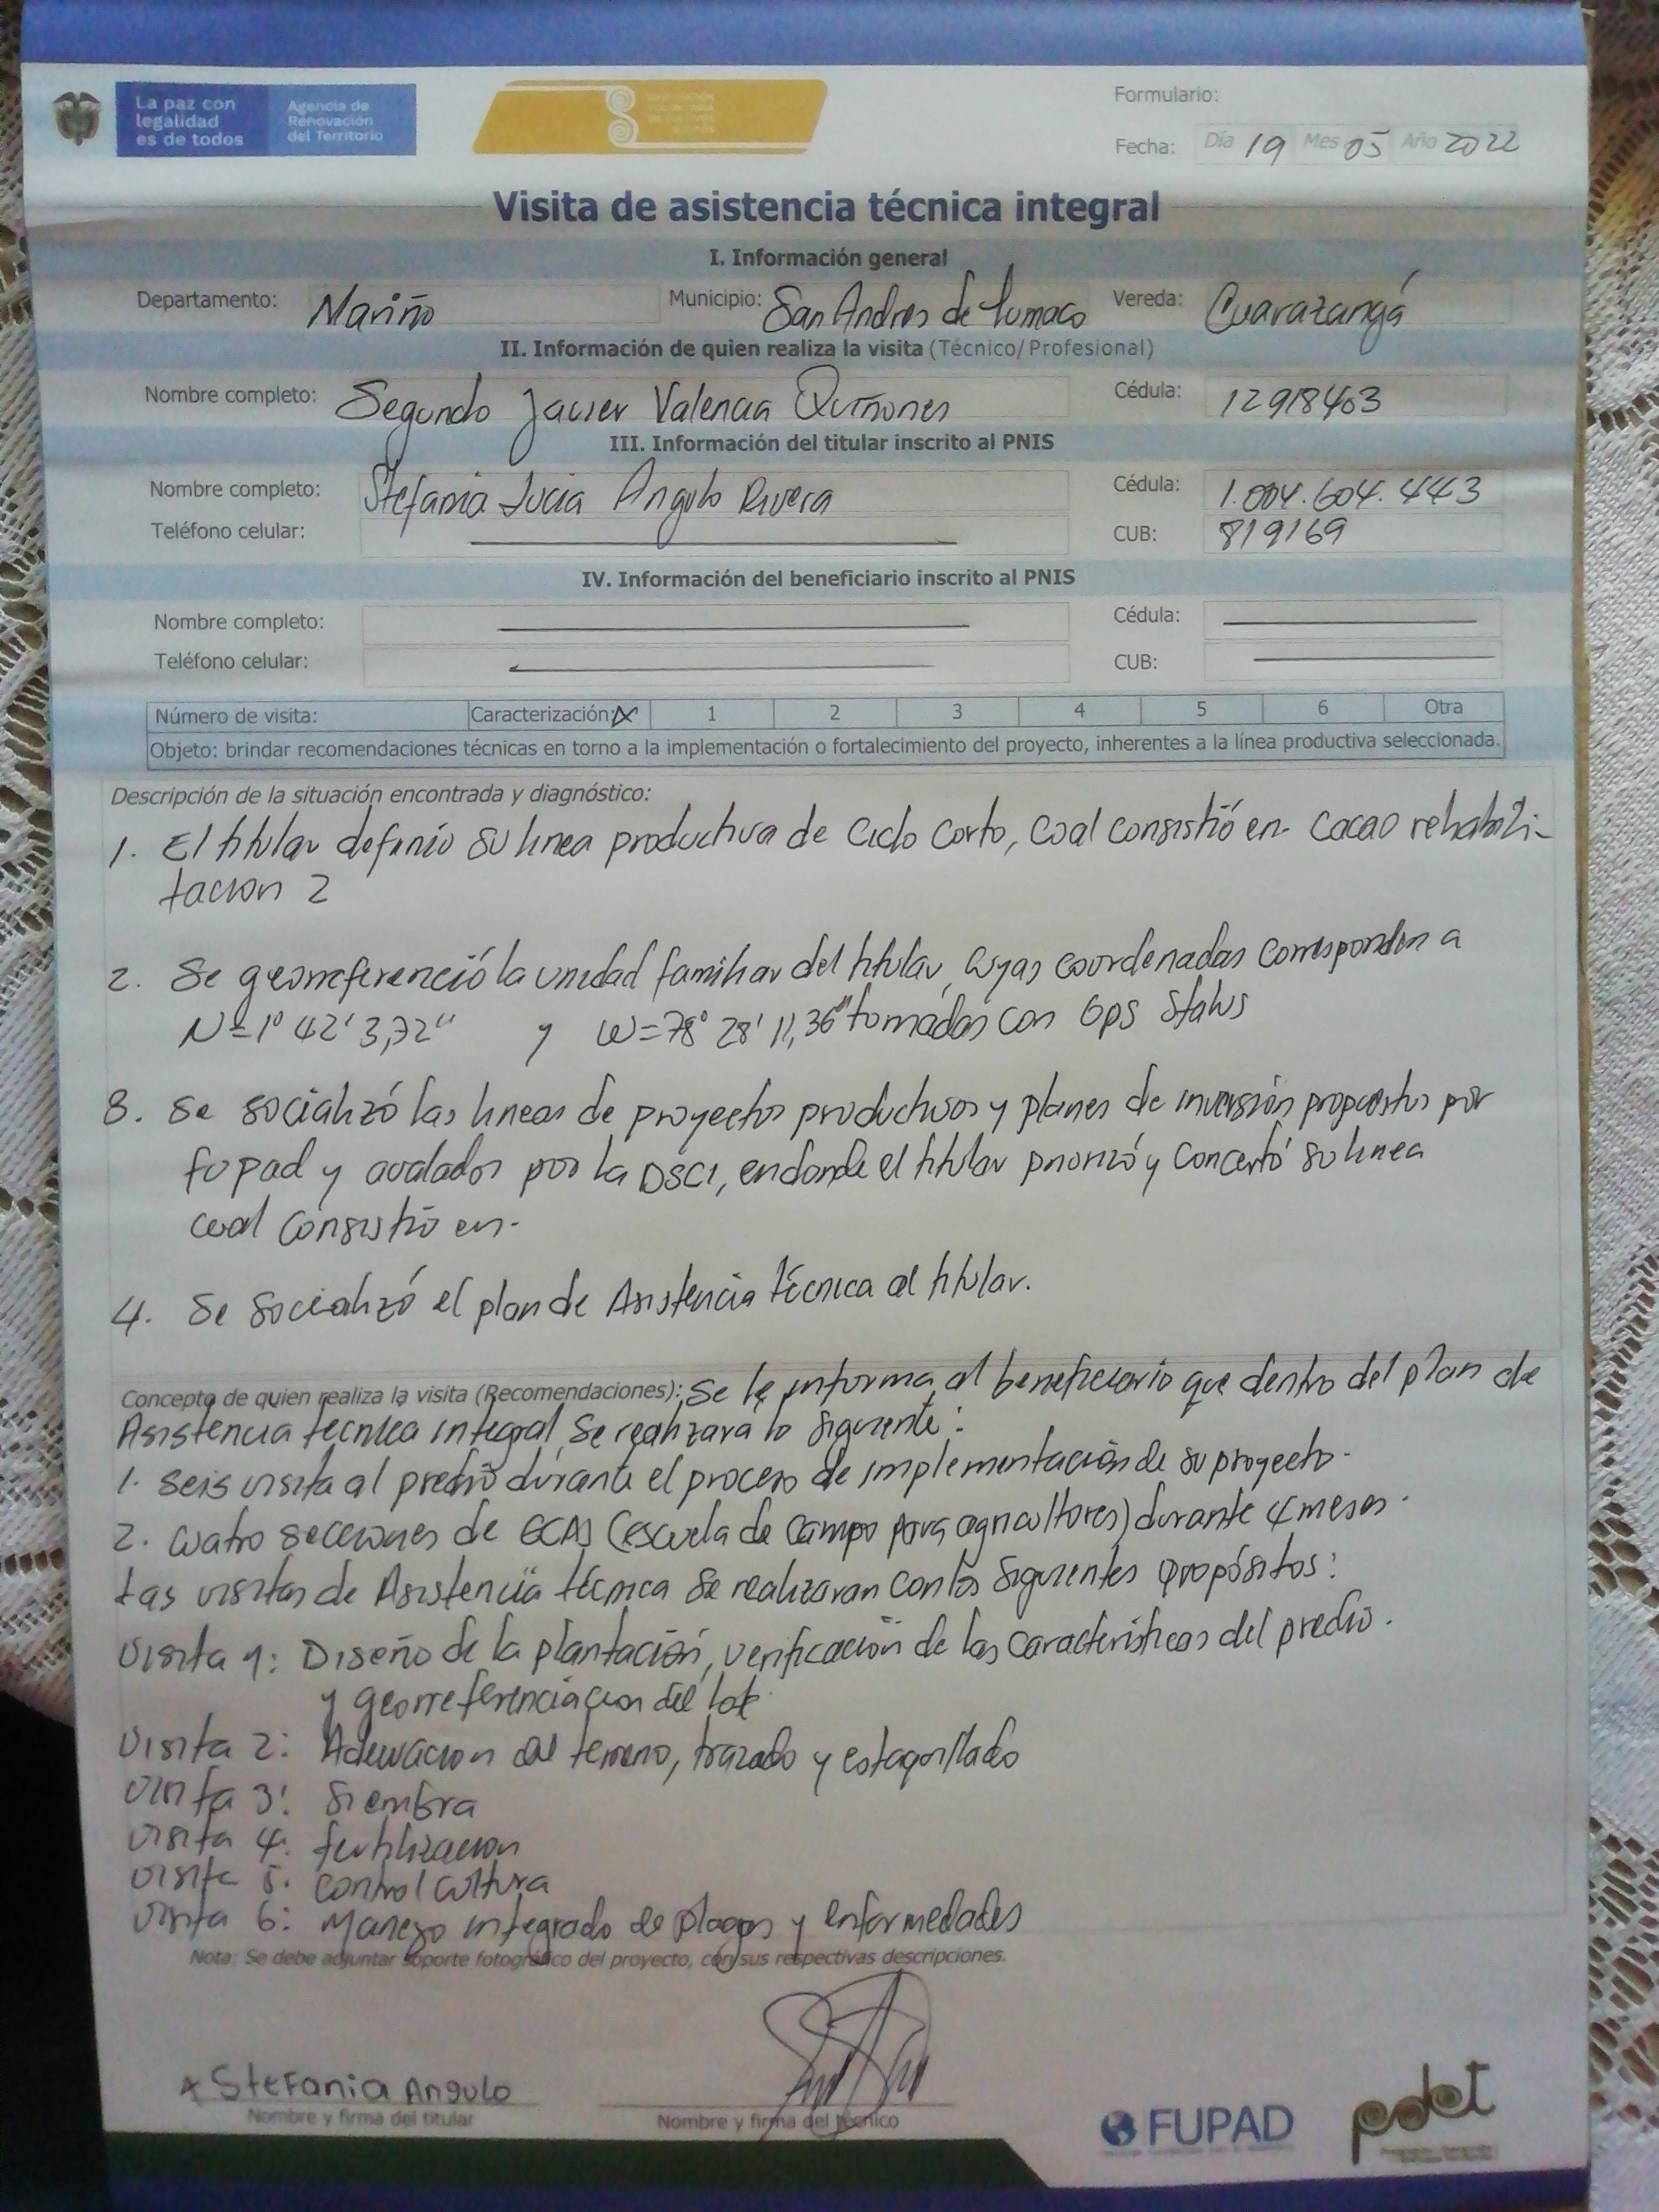 La paz con
legalidad
es de todos
Agencia de
Renovación
del Territorio
Formulario:
Fecha: Día 19 Mes 05 Año 2022
Visita de asistencia técnica integral
I. Información general
Departamento: Nariño Municipio: San Andres de Tumaco Vereda: Cuarazangá
II. Información de quien realiza la visita (Técnico/Profesional)
Nombre completo: Segundo Javier Valencia Quiñones Cédula: 12918403
III. Información del titular inscrito al PNIS
Nombre completo: Stefania Lucia Angulo Rivera Cédula: 1.004.604.443
Teléfono celular: CUB: 819169
IV. Información del beneficiario inscrito al PNIS
Nombre completo: Cédula:
Teléfono celular: CUB:
Número de visita: Caracterización: X 1 2 3 4 5 6 Otra
Objeto: brindar recomendaciones técnicas en torno a la implementación o fortalecimiento del proyecto, inherentes a la línea productiva seleccionada.
Descripción de la situación encontrada y diagnóstico:
1. El titular definio su linea productiva de Ciclo Corto, Cual consistió en- Cacao rehabili-
tacion 2
2. Se georreferenció la unidad familiar del titular, cuyas coordenadas corresponden a
N=1° 42' 3,72" y W=78° 28' 11,36" tomadas con Gps Status
3. Se socializó las lineas de proyectos productivos y planes de inversión propuestos por
fupad y avalados por la DSCI, en donde el titular priorizó y concertó su linea
cual consistió en-
4. Se socializó el plan de Asistencia técnica al titular.
Concepto de quien realiza la visita (Recomendaciones): Se le informa al beneficiario que dentro del plan de
Asistencia técnica integral, Se realizara lo siguiente:
1. Seis visita al predio durante el proceso de implementación de su proyecto-
2. Cuatro secciones de ECAS (escuela de campo para agricultores) durante 4 meses.
Las visitas de Asistencia técnica se realizaran con los siguientes propósitos:
Visita 1: Diseño de la plantación, verificación de las características del predio.
y georreferenciacion del lote.
Visita 2: Adecuacion del terreno, trazado y estaquillado
Visita 3: Siembra
Visita 4: fertilizacion
Visita 5: Control cultura
Visita 6: Manejo integrado de plagas y enfermedades
Nota: Se debe adjuntar soporte fotográfico del proyecto, con sus respectivas descripciones.
x Stefania Angulo
Nombre y firma del titular Nombre y firma del técnico
FUPAD
pdet